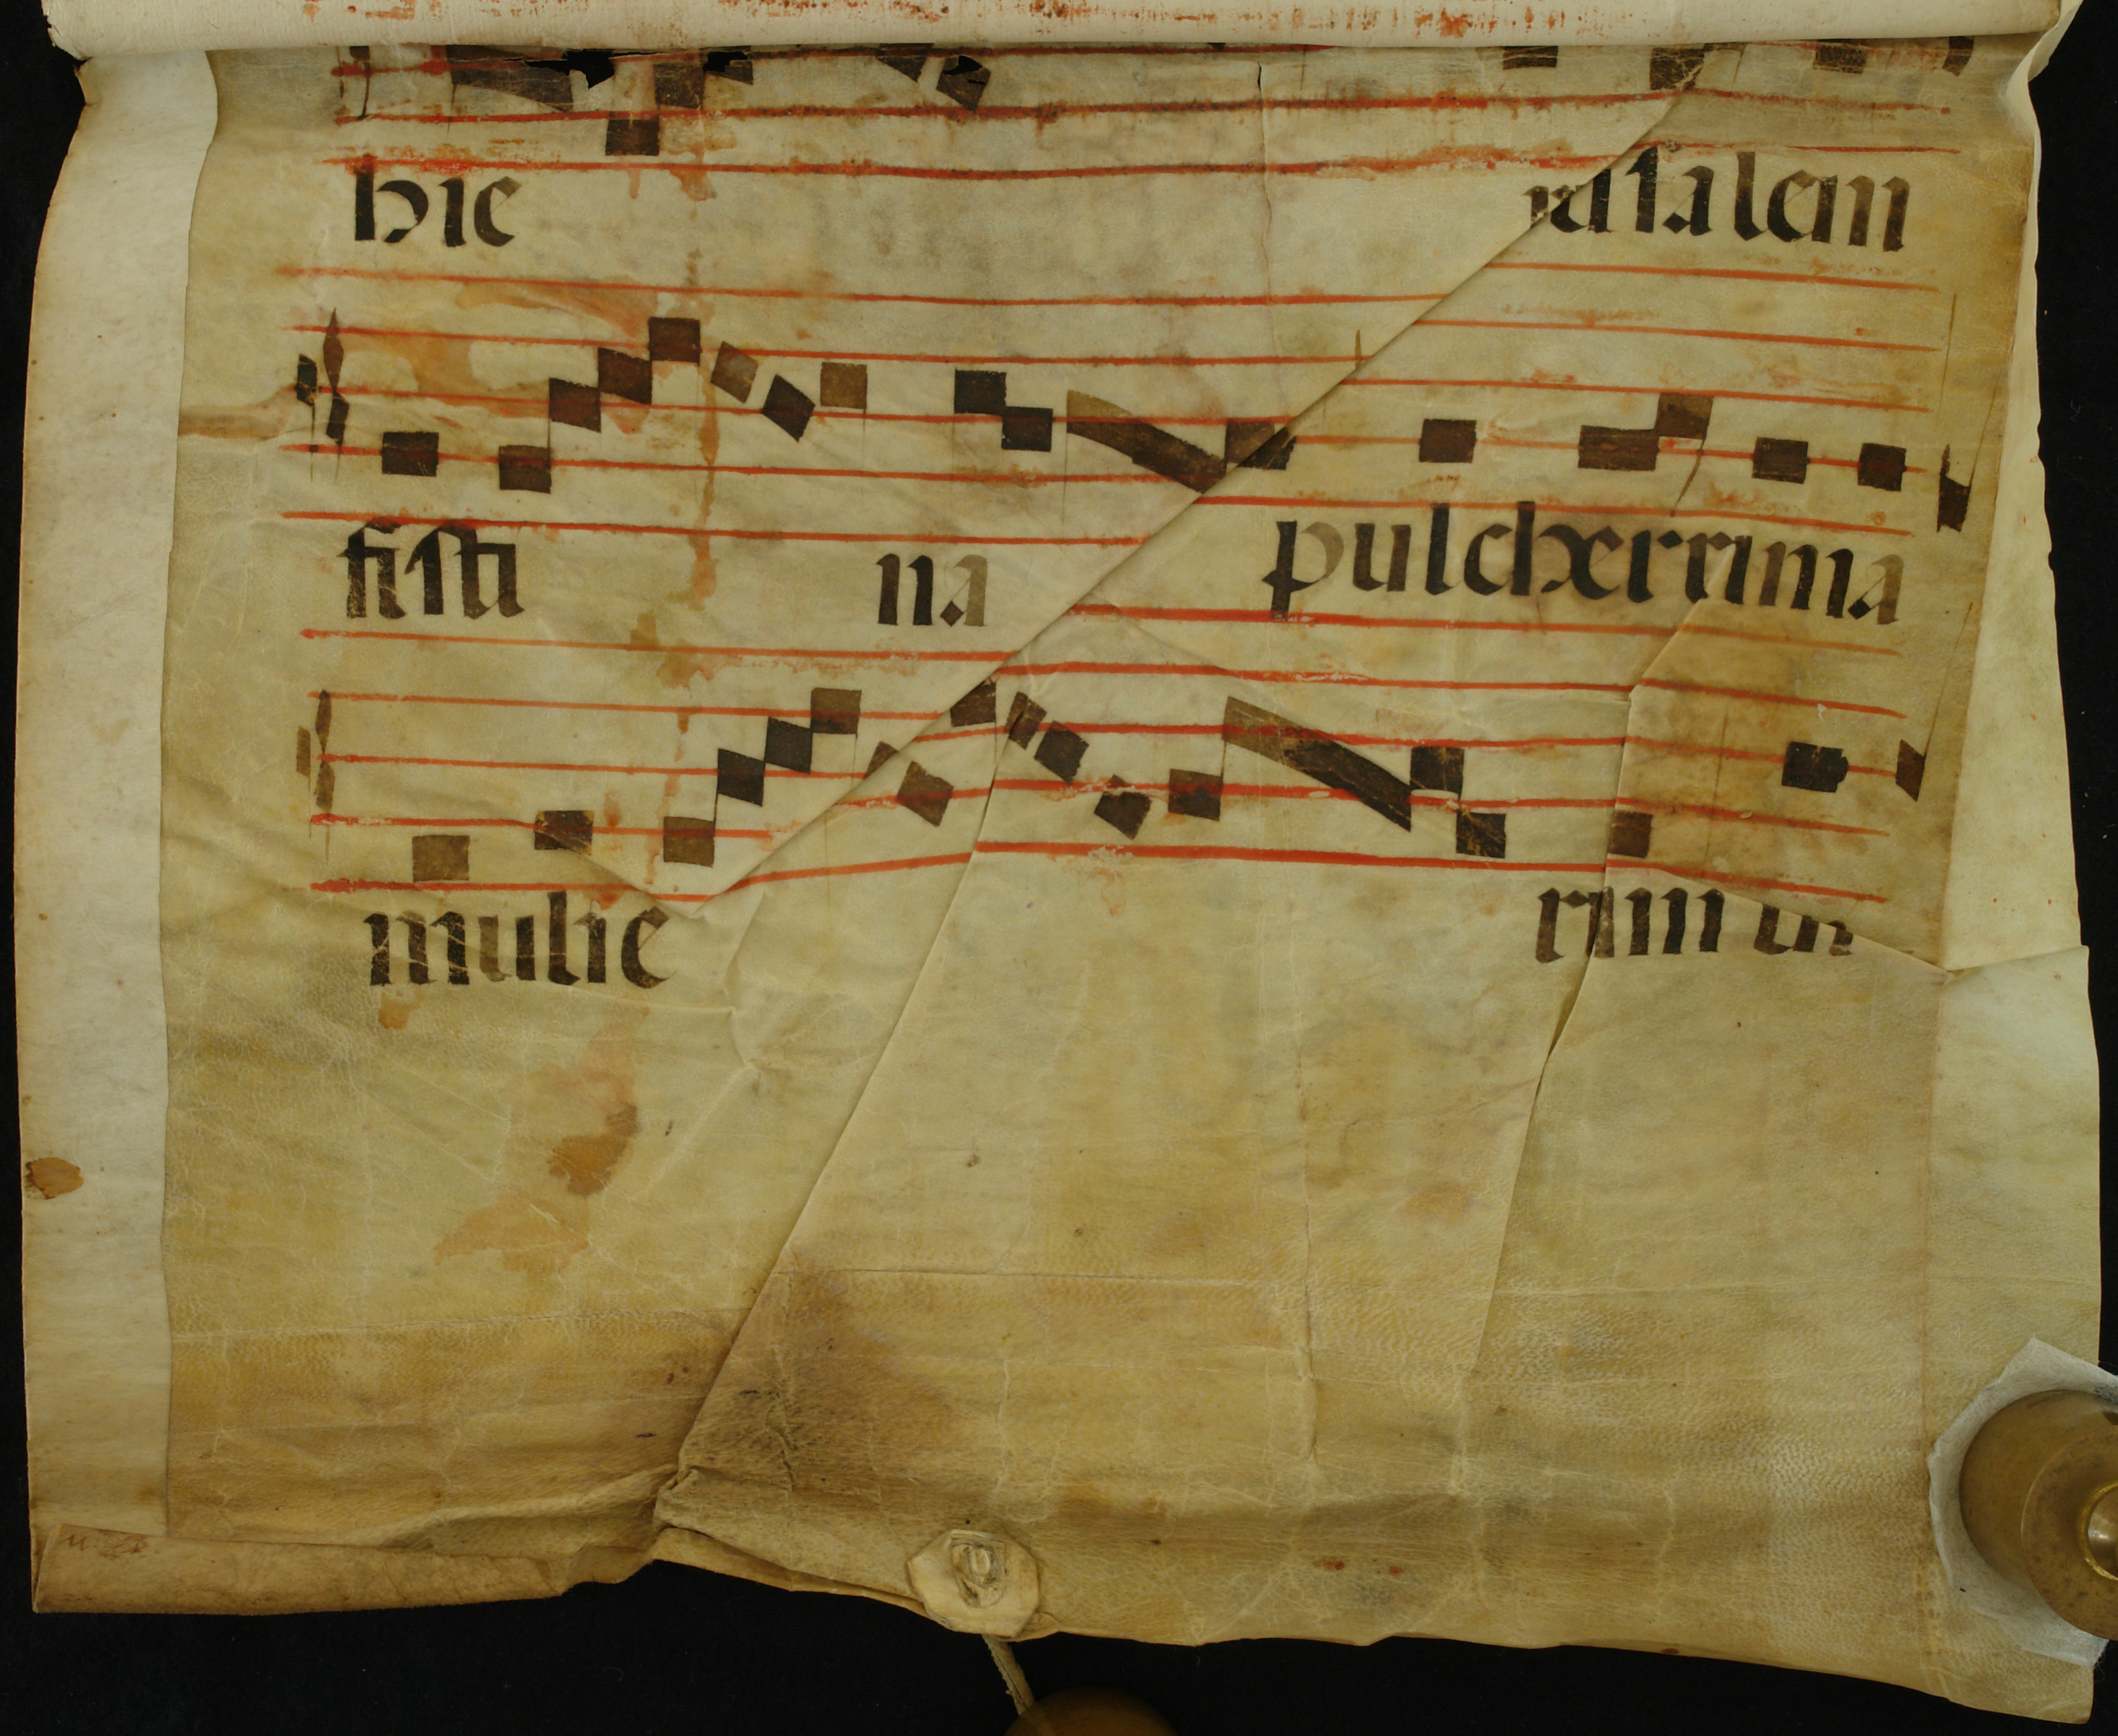 hie rusalem
fisti na pulcherrima
mulie rum ut